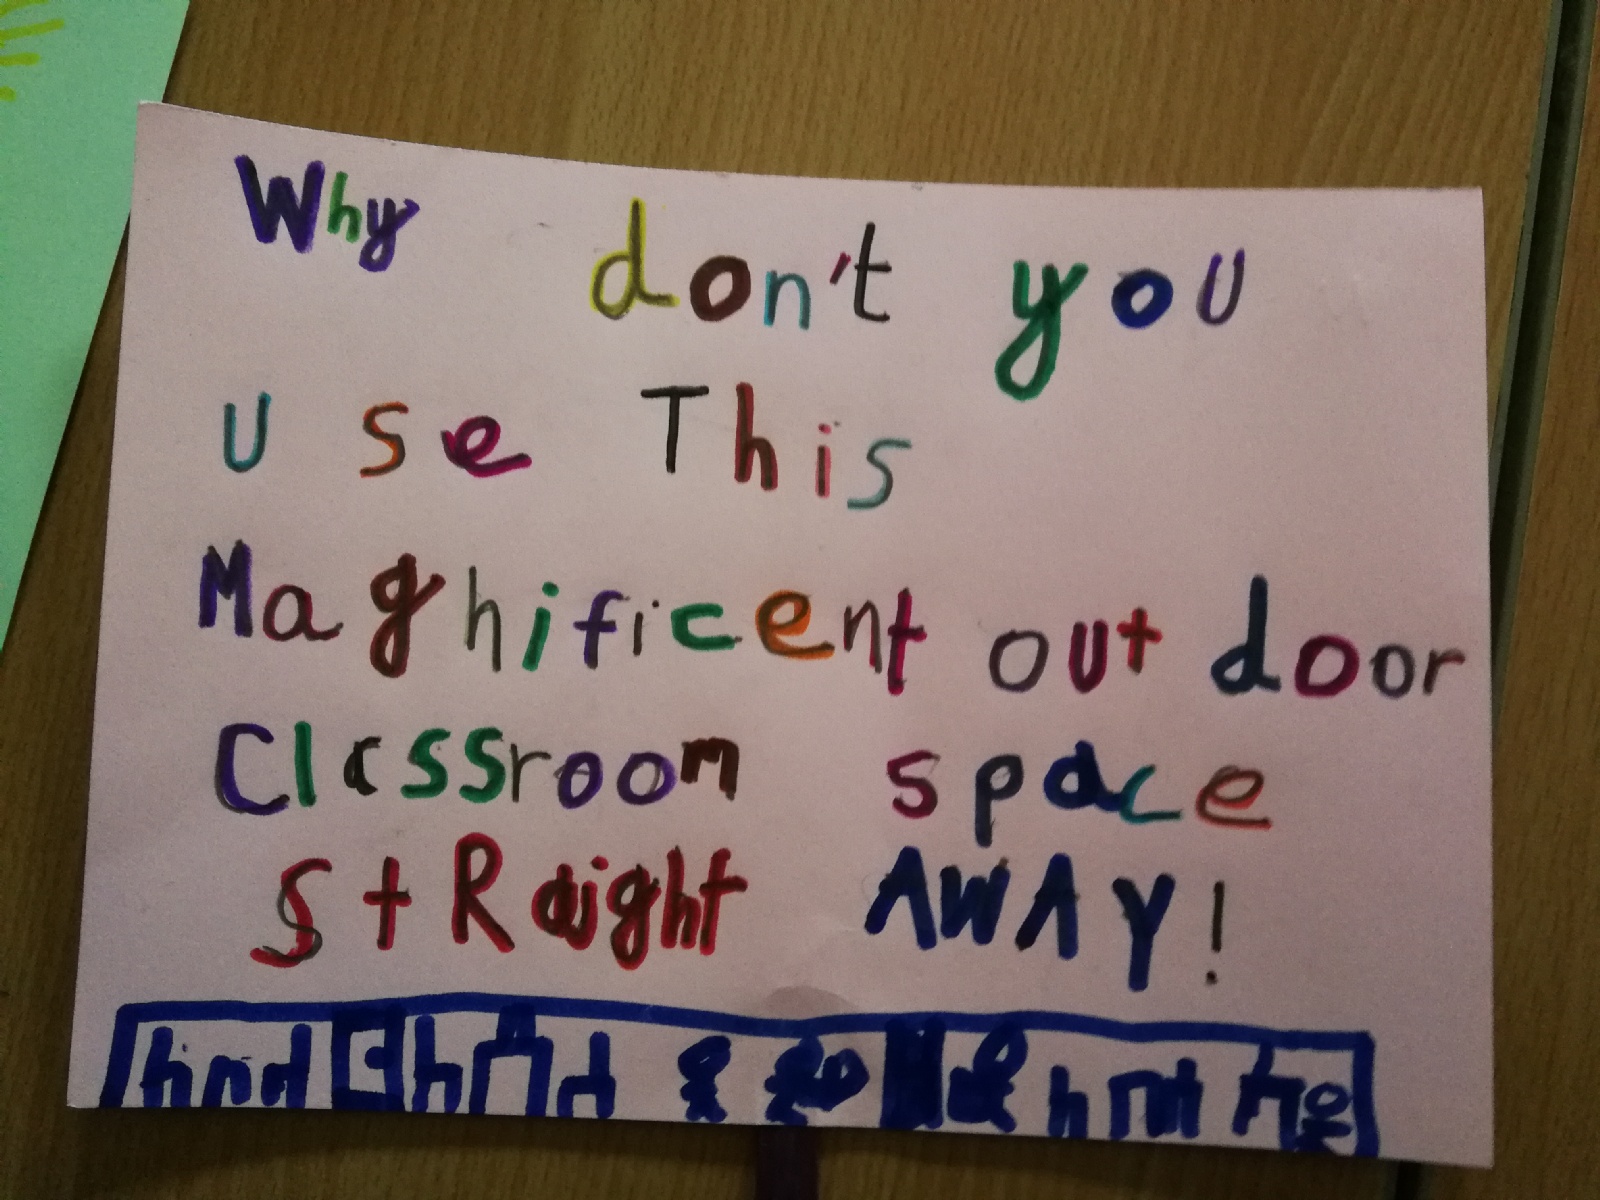 Why don't you
use This
Maghificent out door
Classroom space
stRaight AWAY!